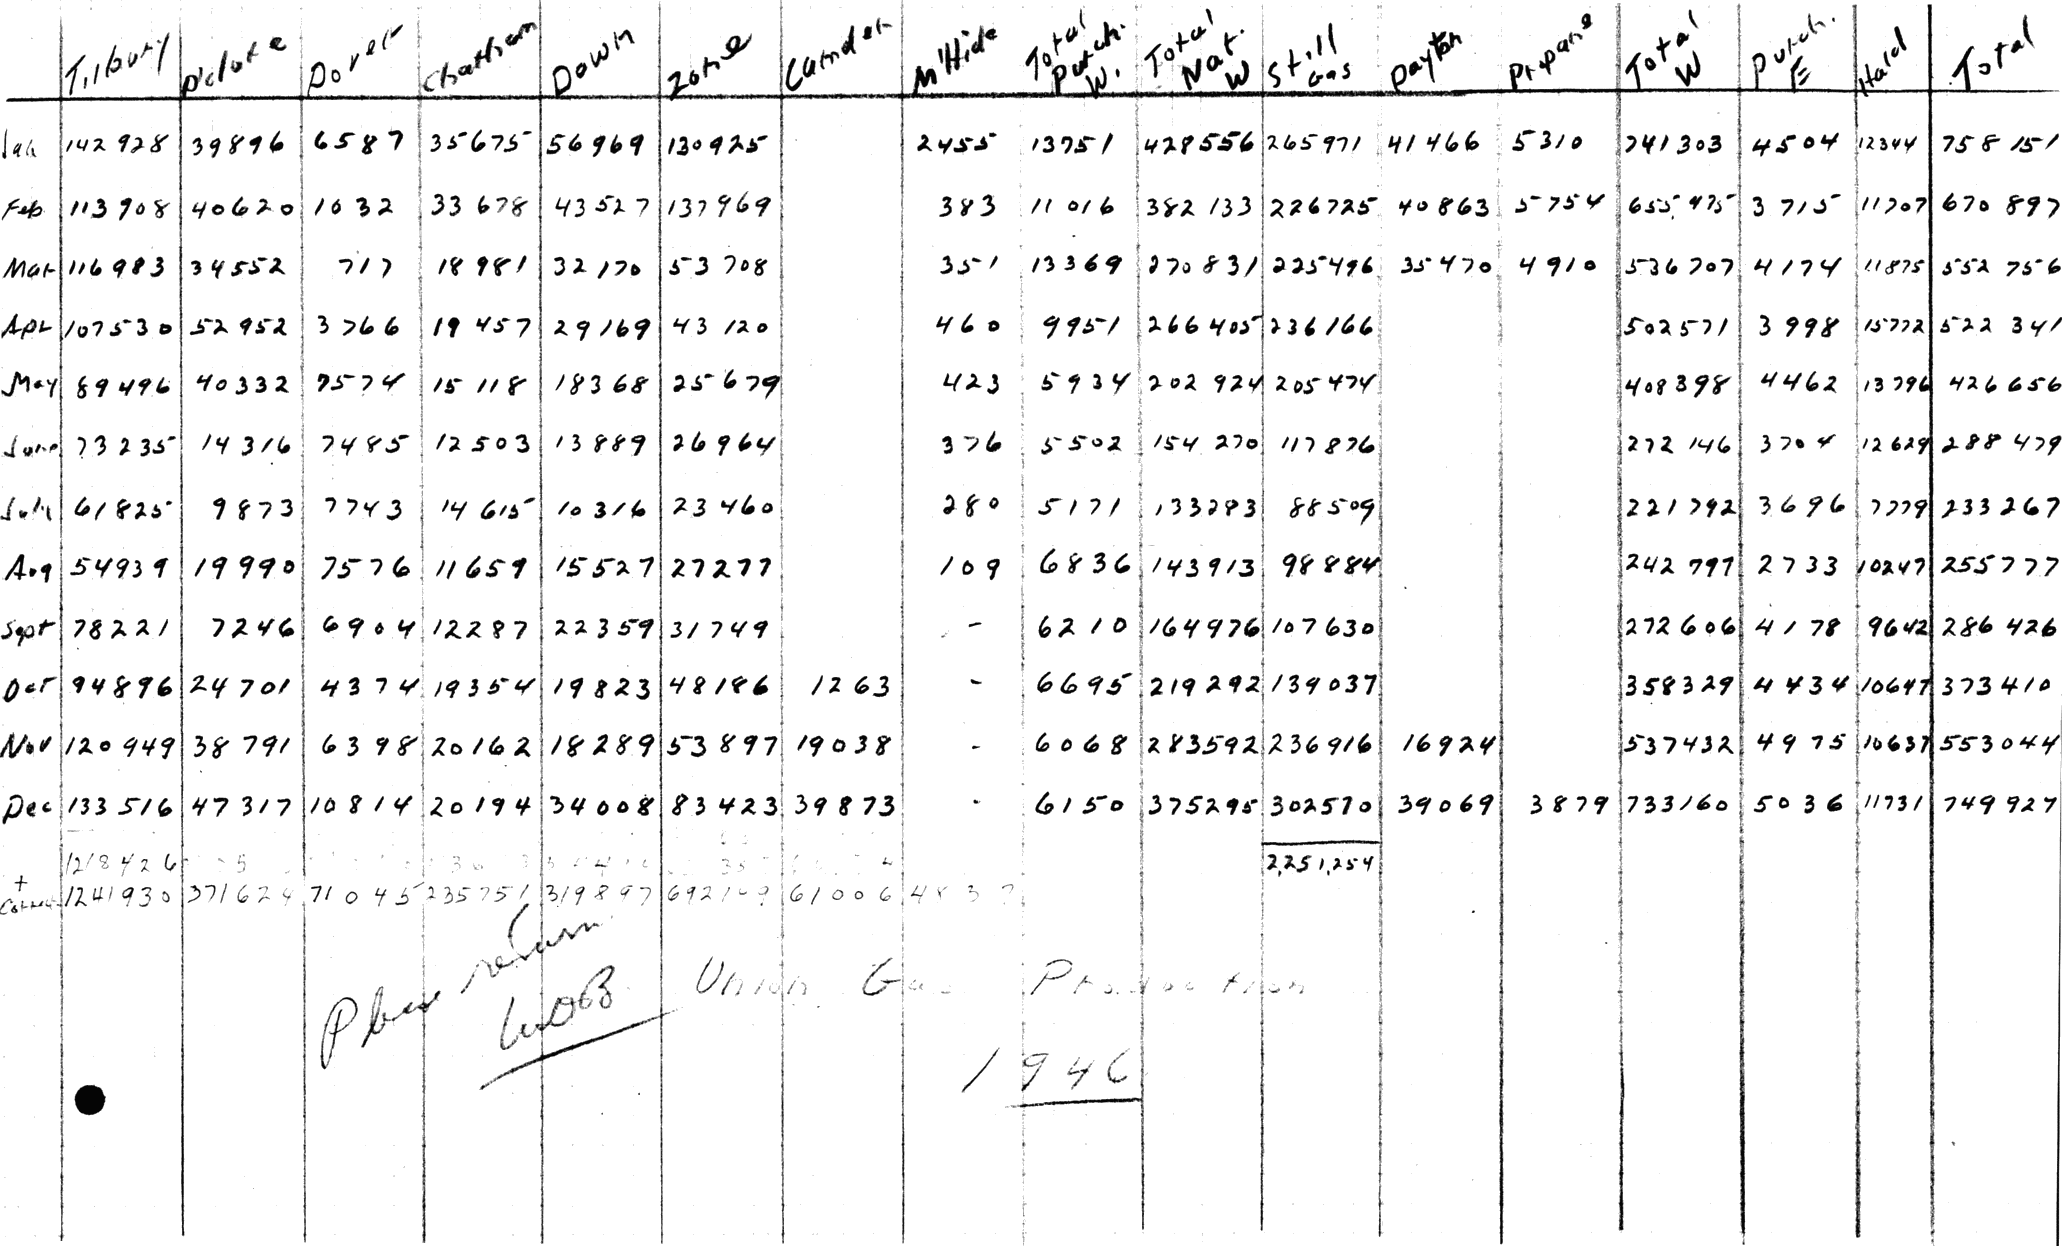 Tilbury D'clute Dover Chatham Dawn Zone Camden M'Hide Total Purch. W. Total Nat. W Still Gas Dayton Propane Total W Purch. E Hald Total
Jan 142928 39896 6587 35675 56969 130925 2455 13751 428556 265971 41466 5310 741303 4504 12344 758151
Feb 113908 40620 1032 33678 43527 137969 383 11016 382133 226725 40863 5754 655475 3715 11707 670897
Mar 116983 34552 717 18981 32170 53708 351 13369 270831 225496 35470 4910 536707 4174 11875 552756
Apr 107530 52952 3766 19457 29169 43120 460 9951 266405 236166 502571 3998 15772 522341
May 89496 40332 7574 15118 18368 25679 423 5934 202924 205474 408398 4462 13796 426656
June 73235 14316 7485 12503 13889 26964 376 5502 154270 117876 272146 3704 12629 288479
July 61825 9873 7743 14615 10316 23460 280 5171 133283 88509 221792 3696 7779 233267
Aug 54939 19990 7576 11659 15527 27277 109 6836 143913 98884 242797 2733 10247 255777
Sept 78221 7246 6904 12287 22359 31749 - 6210 164976 107630 272606 4178 9642 286426
Oct 94896 24701 4374 19354 19823 48186 1263 - 6695 219292 139037 358329 4434 10647 373410
Nov 120949 38791 6398 20162 18289 53897 19038 - 6068 283592 236916 16924 537432 4975 10637 553044
Dec 133516 47317 10814 20194 34008 83423 39873 - 6150 375295 302570 39069 3879 733160 5036 11731 749927
1218426 2,251,254
+ 1241930 371624 71045 235751 319897 61006 4837
Please return
WOB
Union Gas Production
1946